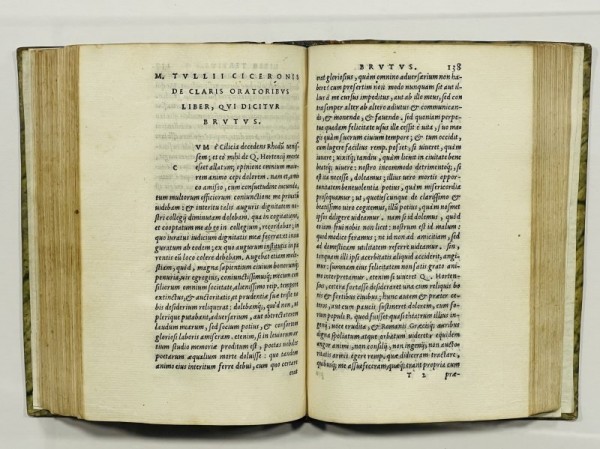 M. TVLLII CICERONIS
DE CLARIS ORATORIBVS
LIBER, QVI DICITVR
BRVTVS.
VM è Cilicia decedens Rhodū uenis
sem; et eò mihi de Q. Hortensij morte
C esset allatum; opinione omnium mai
orem animo cepi dolorem. nam et, ami
co amisso, cum consuetudine iucunda,
tum multorum officiorum coniunctione me priuatū
uidebam; & interitu talis auguris dignitatem no
stri collegij diminutam dolebam. qua in cogitatione,
et cooptatum me ab eo in collegium, recordabar, in
quo iuratus iudicium dignitatis meæ fecerat. et inau
guratum ab eodem. ex quo augurum institutis in pa
rentis eū loco colere debebam. Augebat etiam mole
stiam, quòd, magna sapientium ciuium bonorumq;
penuria, uir egregius, coniunctissimusq; mecum con
siliorum omnium societate, alienissimo reip. tempore
extinctus, & auctoritatis, et prudentiæ suæ triste no
bis desiderium reliquerat: dolebamq;, quòd non, ut
plerique putabant, aduersarium, aut obtrectatorem
laudum mearum, sed socium potius, & consortem
gloriosi laboris amiseram. etenim, si in leuiorum ar
tium studio memoriæ proditum est, poetas nobiles
poetarum æqualium morte doluisse: quo tandem
animo eius interitum ferre debui, cum quo certare
erat
BRVTVS. 138
erat gloriosius, quàm omnino aduersarium non ha
bere? cum præsertim non modo nunquam sit aut il
lius à me cursus impeditus, aut ab illo meus, sed con
tra semper alter ab altero adiutus & communican
do, & monendo, & fauendo. sed quoniam perpe
tua quadam felicitate usus ille cessit è uita, suo ma
gis quàm suorum ciuium tempore, & tum occidit,
cum lugere facilius remp. posset, si uiueret, quàm
iuuare; uixitq; tandiu, quàm licuit in ciuitate bene
beateq; uiuere: nostro incommodo detrimentoq;, si
est ita necesse, doleamus; illius uero mortis oppor
tunitatem beneuolentia potius, quàm misericordia
prosequamur: ut, quotiescunque de clarissimo &
beatissimo uiro cogitemus, illū potius, quàm nosmet
ipsos diligere uideamur. nam si id dolemus, quòd
eo iam frui nobis non licet: nostrum est id malum:
quod modice feramus; ne id non ad amicitiam, sed
ad domesticam utilitatem referre uideamur. sin,
tanquam illi ipsi acerbitatis aliquid acciderit, angi
mur: summam eius felicitatem non satis grato ani
mo interpretamur. etenim si uiueret Q. Horten
sius, cetera fortasse desideraret una cum reliquis bo
nis & fortibus ciuibus; hunc autem & præter cete
ros, et cum paucis sustineret dolorem, cum forum
populi R. quod fuisset quasi theatrum illius ingenij,
uoce erudita, & Romanis Græcisq; auribus
digna spoliatum atque orbatum uideret. equidem
angor animo, non consilij, non ingenij, non aucto
ritatis armis egere remp. quæ didiceram tractare,
quibusq; me assuefeceram, quæq; erant propria cum
T 2 præ=